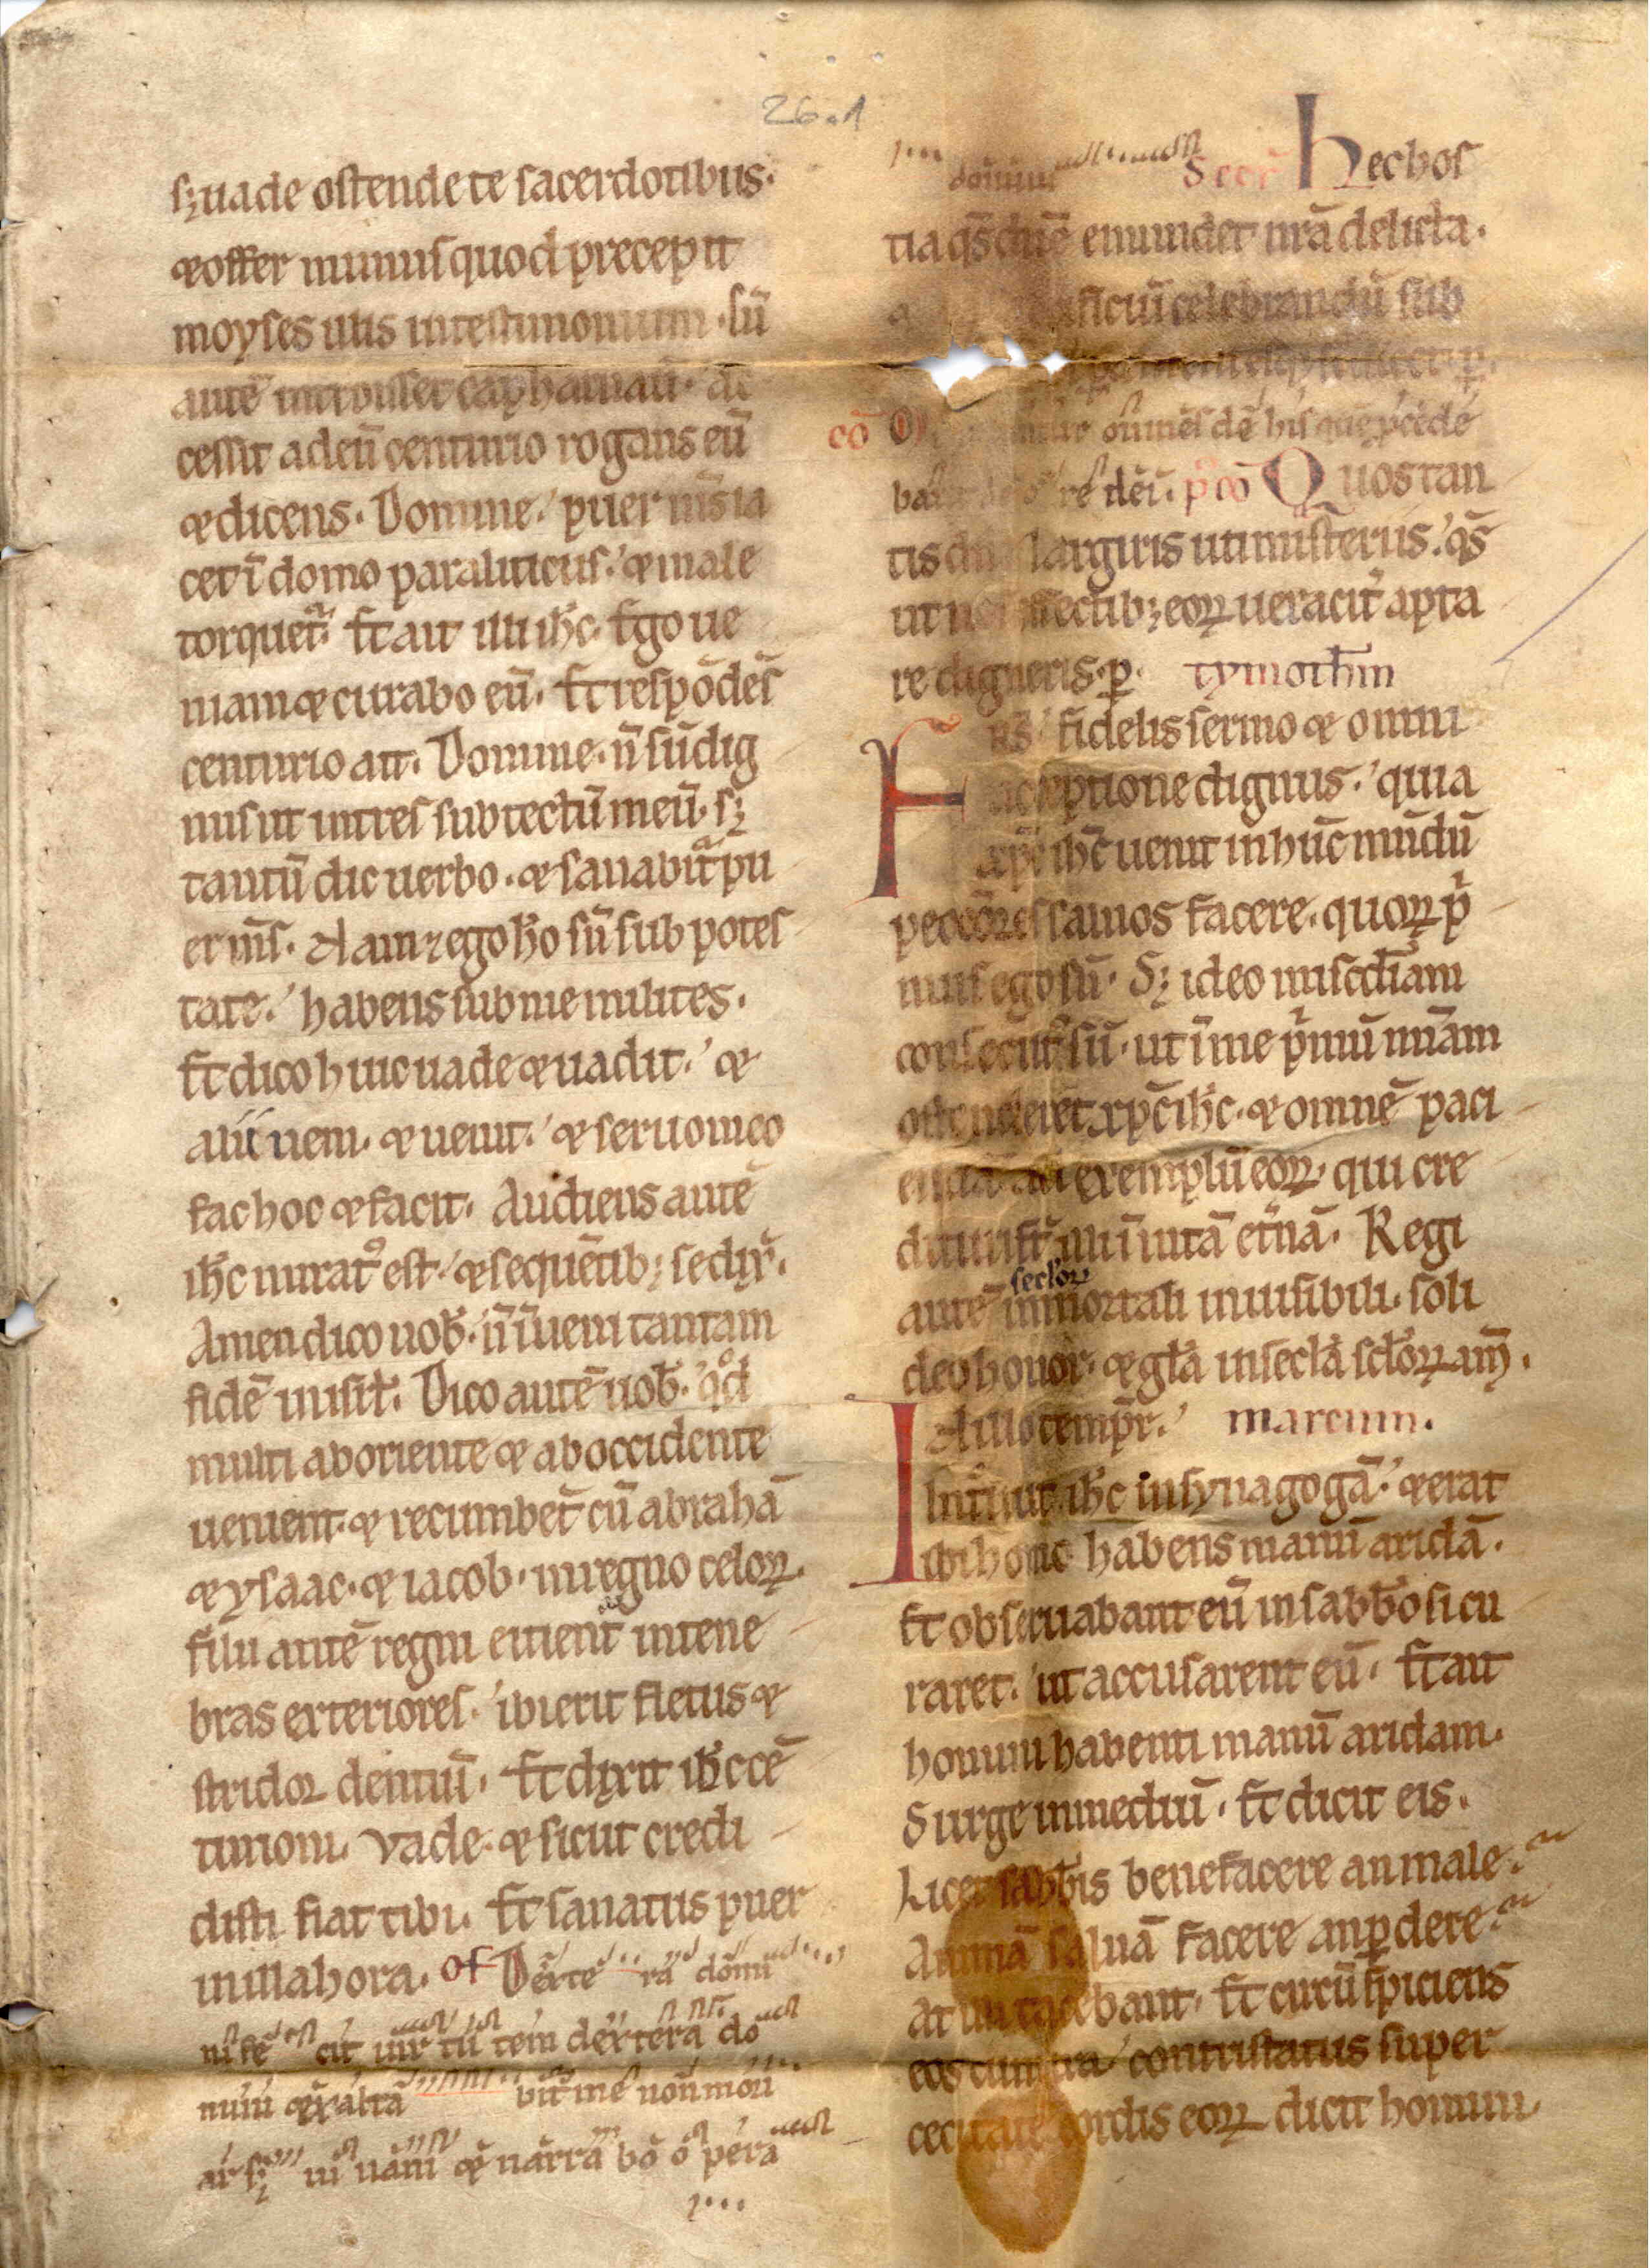 26.1
sꝫ uade ostende te sacerdotibus.
⁊ offer munus quod precepit
moyses illis in testimonium. Cū
autē introisset capharnaū. ac
cessit ad eū centurio rogans eū
⁊ dicens. Domine. puer mˢ ia
cet ī domo paraliticus. ⁊ male
torquet̄. Et ait illi ihc̄. Ego ue
niam ⁊ curabo eū. Et respōdēs
centurio ait. Domine. n̄ sū dig
nus ut intres sub tectū meū. sꝫ
tantū dic uerbo. ⁊ sanabit̄ pu
er ms̄. Nam ⁊ ego hō sū sub potes
tate. habens sub me milites.
Et dico huic uade ⁊ uadit. ⁊
alii ueni. ⁊ uenit. ⁊ seruo meo
fac hoc ⁊ facit. Audiens autē
ihc̄ miratꝰ est. ⁊ sequētibꝫ se dix̄.
Amen dico uob̄. n̄ īueni tantam
fidē in isrl̄. Dico autē uob̄. qd̄
multi ab oriente ⁊ ab occidente
uenient. ⁊ recumbēt cū abrahā
⁊ ysaac. ⁊ iacob. in regno celoꝝ.
filii autē regni eitient in tene
bras exteriores. ibi erit fletus ⁊
stridor dentiū. Et dixit ihc̄ cē
turioni. Vade. ⁊ sicut credi
disti fiat tibi. Et sanatus puer
in illa hora. Of Dexte ra domi
ni fe cit uir tu tem dextera do
mini ⁊ exalta bit me non mori
ar sꝫ ui uam ⁊ narra bo o pera
domini Secr̄ Hec hos
tia qs̄ dn̄e emundet nr̄a delicta.
ficiū celebrandū sub
cō omēs dē his quę p̄cēdē
bāt re dei. p̄ cō Quos tan
tis largiris uti misteriis. qs̄
ut effectibꝫ eoꝝ ueracit̄ apta
re digneris. p̄. tymoth̄m
Frs̄ fidelis sermo ⁊ omni
acceptione dignus. quia
xp̄c ihc̄ uenit in hūc mūdū
peccōres saluos facere. quoꝝ p̄
mus ego sū. Sꝫ ideo mis̄cd̄iam
consecutꝰ sū. ut ī me p̄mū om̄am
ostenderet xp̄c ihc̄. ⁊ omnē paci
entiā ad exemplū eoꝝ. qui cre
dituri st̄ illi ī uitā et̄nā. Regi
secl̄oꝝ
autē inmortali inuisibili. soli
deo honor. ⁊ gl̄a in secl̄a scl̄oꝝ am̄.
In illo tempr̄. marcum.
Int̄uit ihc̄ in synagogā. ⁊ erat
ibi homo habens manū aridā.
Et obseruabant eū in sabb̄o si cu
raret. ut accusarent eū. Et ait
homini habenti manū aridam.
Surge in mediū. Et dicit eis.
Licet sabb̄is benefacere an male?
Animā saluā facere an ꝑdere?
At illi tacebant. Et circū sp̄iciens
eos cum ira contristatus super
cecitate cordis eoꝝ dicit homini.